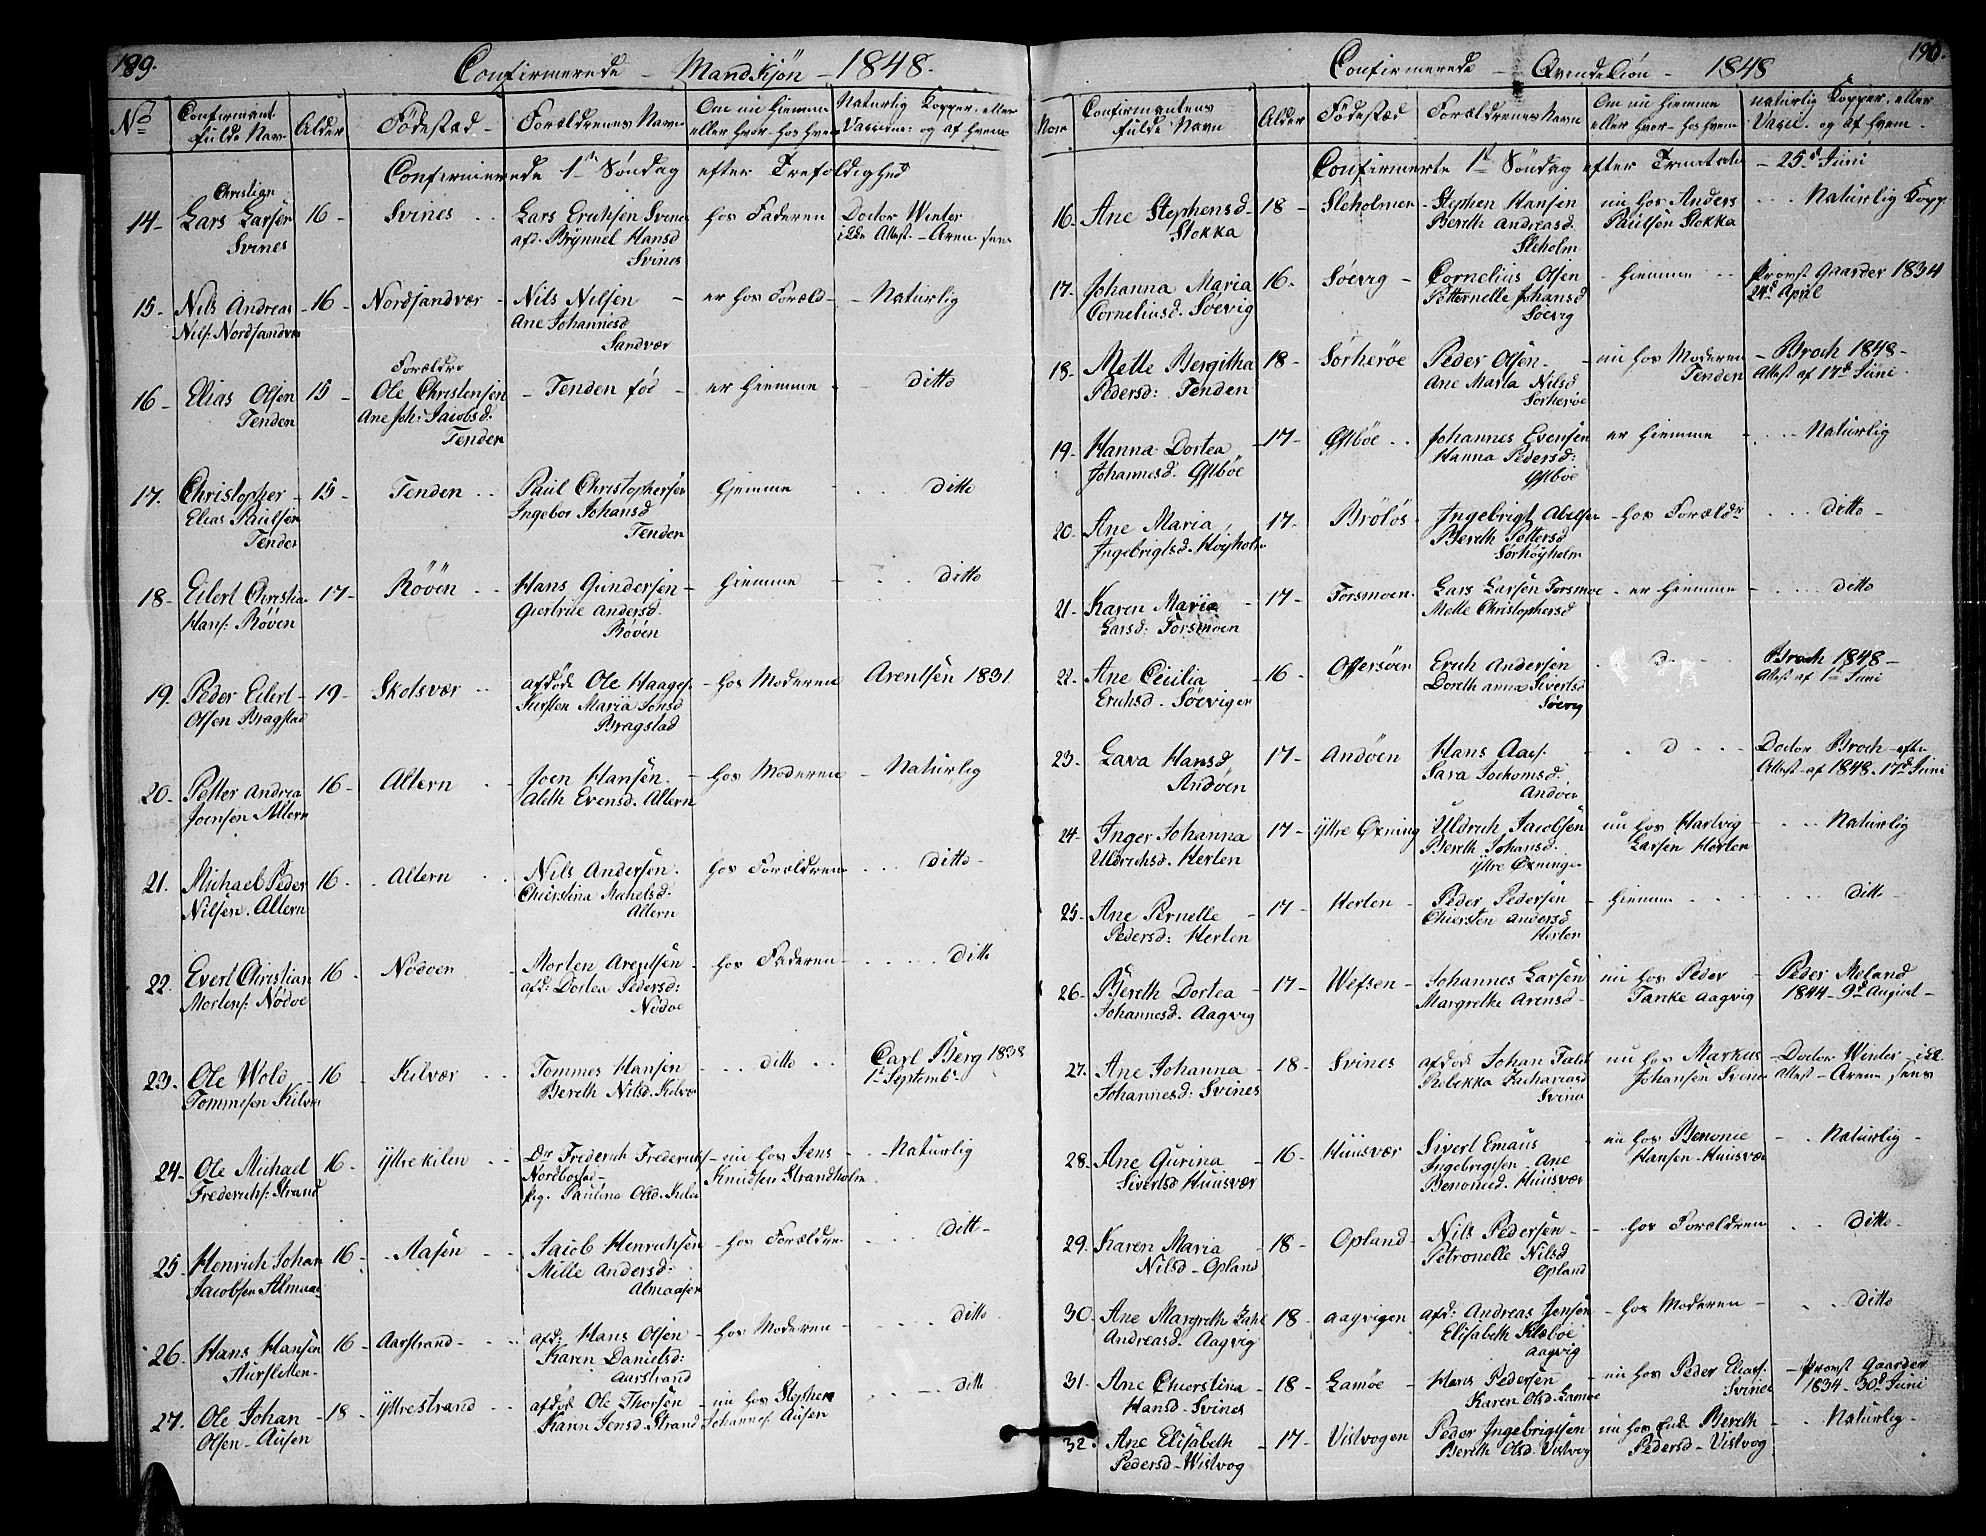 189.
Confirmerede - Mandkjön - 1848.
No
Confirmant fulde Nav
Alder
Födestad
Forældrenes Navn
Om nu hiemme eller hvor - hos hvem
Naturlig Kopper, eller Vaccine og af hvem
Confirmerede 1ste Söndag efter Trefoldighed
14 - Christian Lars Larsen Svines
16 -
Svines
Lars Erichsen Svines afd. Brynnel Hansd Svines
hos Faderen
Doctor Winter ilde Attest - Aren sens
15 - Nils Andreas Nils: Nordsandvær
16 -
Nordsandvær
Nils Nilsen Ane Johannesd Sandvær
er hos Foræld -
Naturlig
16 - Elias Olsen Tenden
15 -
Forældre Ole Christensen Ane Joh: Jacobsd: Tenden
- Tenden föd -
er hiemme -
ditto
17. Christopher - Elias Paulsen Tenden
15 -
Tenden
Paul Christophersen Ingebor Johansd Tenden
hjemme
ditto
18 - Eilert Christia Hans: Röven
17 -
Röven
Hans Gundersen Giertrue Andersd. Röven
hiemme
ditto
19. Peder Eilert - Olsen Bragstad
19 -
Skotsvær
afdöde Ole Haages. Kirsten Maria Jonsd Bragstad
hos Moderen
Arentsen 1831
20 - Petter Andrea Joensen Altern
16 -
Altern
Joen Hansen Aleth Evensd. Altern
hos Moderen
Naturlig
21. Michael Peder Nilsen. Altern
16 -
Altern
Nils Andersen. Chierstina Michelsd: Altern
hos Forældren
ditto -
22. Evert Christian Mortens: Nödöe
16 -
Nödöen
Morten Arentsen afd: Dortea Pedersd: Nödöe
hos Faderen -
ditto
23. Ole Wold Tommesen Kilvær
16
Kilvær
Tommes Hansen Bereth Nilsd. Kilvær
ditto
Carl Berg 1838 1 Septembr
24 - Ole Michael Frederichs: Strand
16 -
Yttrekilen
Dr Frederich Frederichs Pig. Paulina Olsd. Kilen
nu hos Jens Knudsen Strandholm
Naturlig
25 Henrich Johan Jacobsen Almaas
16 -
Aasen
Jacob Henrichsen Mille Andersd: Almaasen
hos Forældren
ditt -
26. Hans Hansen Aursletten -
16 -
Aarstrand -
afd: Hans Olsen Karen Danielsd: Aarstrand
hos Moderen -
ditto
27. Ole Johan Olsen - Ausen
18 -
Yttrestrand
afdöde Ole Thorsen Karen Jensd. Strand
nu hos Stephen Johannes Ausen
ditto
190.
Confirmerede - Qvindekiön - 1848
Nom
Confirmantens fulde Navn
Alder
Födestæd
Forældrenes Navn
Om nu hiemme eller hvor - hos hvem
naturlig Kopper, eller Vacci. og af hvem.
Confirmerte 1st Söndag efter Trinitatis - 25d Juni
16. Ane Stephensd - Stokka
18 -
Sleholmen
Stephen Hansen Bereth Andreasd. Sleholm
nu hos Anders Paulsen Stokka
Naturlig Kopp
17. Johanna Maria Corneliusd. Söevig
16.
Söevig -
Cornelius Olsen Petternelle Johansd Söevig
hiemme
Provst Gaarder 1834 24d April
18. Mette Bergitha Pedersd: Tenden
18 -
Sörheröe
Peder Olsen Ane Maria Nilsd Sörheröe
nu hos Moderen Tenden
Broch 1848 - Attest af 17d Juni
19. Hanna Dortea Johannesd. Östböe
17 -
Östböe
Johannes Evensen Hanna Pedersd: Östböe
er hiemme
Naturlig
20. Ane Maria Ingebrigtsd. Höyholm
17 -
Brölös
Ingebrigt Abelsen Bereth Pettersd Sörhöyholm
hos Forældr
ditto -
21. Karen Maria Larsd: Forsmoen
17 -
Forsmoen
Lars Larsen Forsmoe Mette Christophersd
er hiemme
ditto
22. Ane Cicilia Erichsd. Söevigen
16 -
Offersöen
Erich Andersen Doreth anna Sivertsd Söevig
d
Broch 1848 - Attest af 1ste Juni
23. Lava Hansd Andöen
17 -
Andöen
Hans Aas: Sara Jochomsd. Andöen
d
Doctor Broch efter Attest af 1848. 17d Juni
24. Inger Johanna Uldrichsd. Herten
17 -
Yttre Öxning
Uldrich Jacobsen Bereth Johansd. Yttre Öxninge
nu hos Hartvig Larsen Herten
Naturlig
25. Ane Pernelle Pedersd: Herten
17 -
Herten -
Peder Pedersen Chiersten Andersd Herten
hiemme
ditto
26. Bereth Dortea Johannesd. Aagvig
17 -
Wefsen -
Johannes Larsen Margrethe Arensd -
nu hos Peder Tanke Aagvig
Peder Meland 1844 - 9d August -
27. Ane Johanna Johannesd: Svines
18 -
Svines
afdöde Johan Falch Rebekka Zachariasd Svines
nu hos Markus Johansen Svines
Doctor Winter - ilde attest - Aren sens
28. Ane Gurina Sivertsd Huusvær
16 -
Huusvær
Sivert Emaus Ingebrigtsen - Ane Benomed. Huusvær
nu hos Benonie Hansen - Huusvær
Naturlig -
29. Karen Maria Nilsd - Opland
18 -
Opland
Nils Pedersen - Petronelle Nilsd Opland
hos Forældren
ditto
30. Ane Margreth Zahl Andreasd. Aagvig
18 -
Aagvigen
afd: Andreas Jensen Elisabeth Klæboe Aagvig
hos Moderen -
ditto
31. Ane Chierstina Hansd - Svines
18 -
Lamöe
Hans Pedersen Karen Olsd. Lamöe
nu hos Peder Elias: Svines
Provst Gaarder 1834 - 30d Juni
32. Ane Elisabeth Pedersd - Wistvog
17 -
Vistvogen
Peder Ingebrigtsen Bereth Olsd. Vistvog
nu hos Enk. Bereth Pedersd - Vistvog
Naturlig -